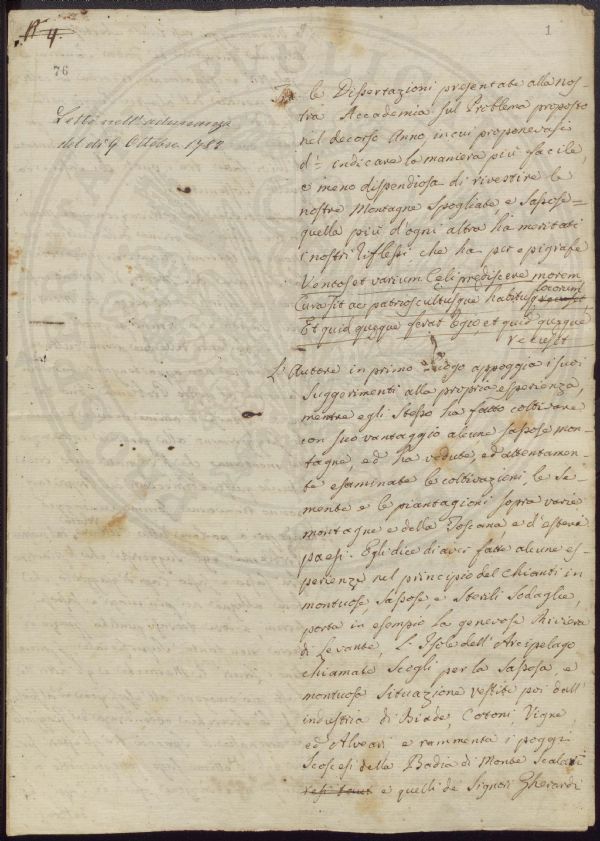 N 4.
1
76
Letta nell'adunanza
del dì 9 Ottobre 1788
Fra le Dissertazioni presentate alla nos-
tra Accademia sul Problema proposto
nel decorso Anno, in cui proponevasi
d'Indicare la maniera più facile,
e meno dispendiosa di rivestire le
nostre Montagne Spogliate, e Sassose =
quella più d'ogni altra ha meritati
i nostri riflessi che ha per epigrafe
Ventos et varium Celi prediscere morem
Cura sit ac patrios cultusque habitusq locorum
Et quid queque ferat Regio et quid queque
recuset
L'Autore in primo luogo appoggia i suoi
suggerimenti alla propria esperienza,
mentre egli stesso ha fatto coltivare
con suo vantaggio alcune sassose mon-
tagne, ed ha vedute, ed attentamen-
te esaminate le coltivazioni, le se-
mente e le piantagioni sopra varie
montagne e della Toscana e d'esteri
paesi. Egli dice di aver fatte alcune es-
perienze nel principio del Chianti in
montuose sassose, e sterili sodaglie,
porta in esempio la genovese Riviera
di Levante, L'Isole dell'Arcipelago
chiamate Scogli per la sassosa e
montuosa situazione vestite poi dall'
industria di Biade, Cotoni, Vigne
ed Alveari e rammenta i poggi
scoscesi della Badia di Monte Scalari
e quelli de Signori Gherardi